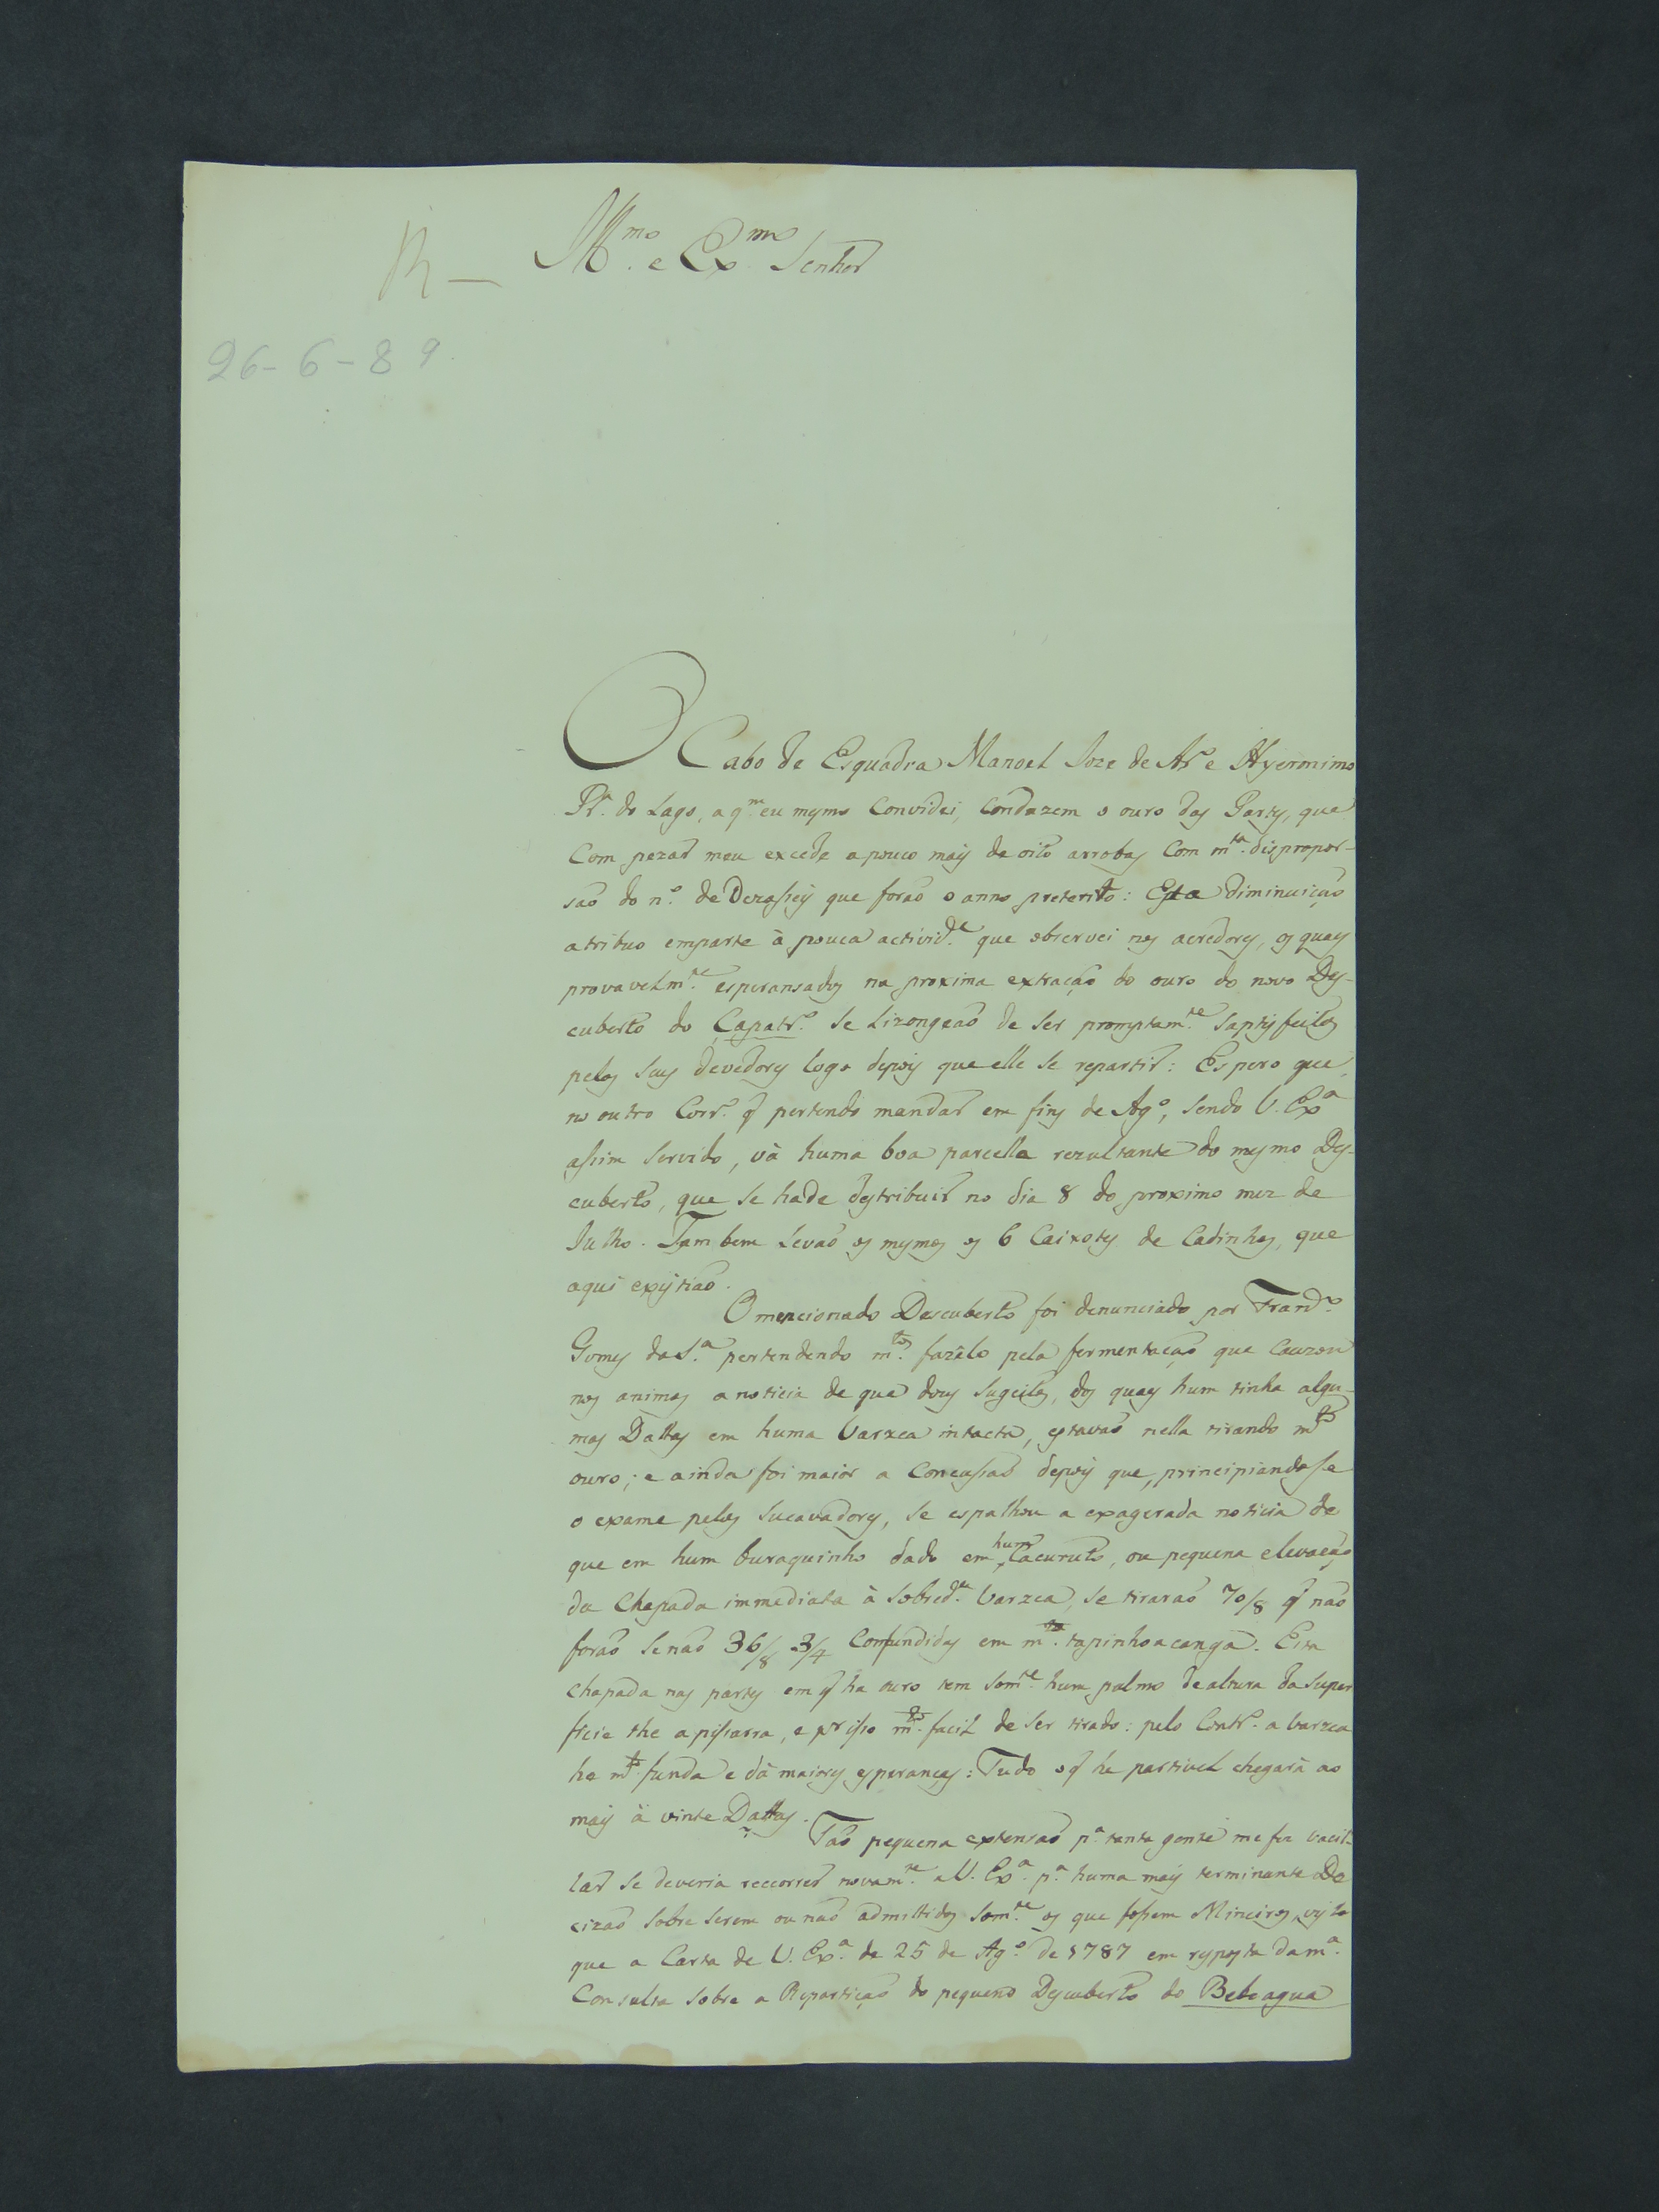 R—
Ill.mo e Ex.mo Senhor
26-6-89
O Cabo de Esquadra Manoel Joze de Ar.o e Hyeronimo
Pr.a do Lago, a q.m eu mesmo Convidei, Conduzem o ouro das Partes, que
Com pezar meu excede a pouco mais de oito arrobas Com m.ta dispropor-
saõ do n.o de Dezaseis que foraõ o anno preterito: Esta diminuiçaõ
atribuo emparte à pouca activid.e que observei nos acredores, os quaes
provavelm.te esperansados na proxima extraçaõ do ouro do novo Des-
cuberto do Capatr.o se Lizongeaõ de ser promptam.te saptisfeitos
pelos seus devedores logo depois que elle se repartir: Espero que
no outro Corr.o q̃ pertendo mandar em fins de Ag.o, sendo V. Ex.a
assim servido, và huma boa parcella rezultante do mesmo Des-
cuberto, que se hade destribuir no dia 8 do proximo mez de
Julho. Tambem Levaõ os mesmos os 6 Caixotes de Cadinhos, que
aqui existiaõ.
O mencionado Descuberto foi denunciado por Fran.co
Gomes da S.a pertendendo m.tos fazêlo pela fermentaçaõ que Cauzou
nos animos a noticia de que dous sugeitos, dos quaes hum tinha algu-
mas Dattas em huma Varzea intacta, estavaõ nella tirando m.to
ouro; e ainda foi maior a Concussaõ depois que, principiandose
o exame pelos sucavadores, se espalhou a exagerada noticia de
que em hum buraquinho dado em hum Cacuruto, ou pequena elevaçaõ
da Chapada immediata à sobred.a Varzea, se tiraraõ 70/8 q̃ naõ
foraõ senaõ 36/8 3/4 Confundidas em m.ta tapinhoacanga. Esta
chapada nas partes em q̃ ha ouro tem som.te hum palmo de altura da super
ficie the a pissarra, e pr isso m.to facil de ser tirado: pelo Contr.o a varzea
he m.to funda e dà maiores esperanças: Tudo o q̃ he partivel chegarà ao
mais à vinte Dattas.
Taõ pequena extensaõ p.a tanta gente me fez vacil-
lar se deveria reccorrer novam.te a V. Ex.a p.a huma mais terminante De
cizaõ sobre serem ou naõ admittidos som.te os que fossem Mineiros, visto
que a Carta de V. Ex.a de 25 de Ag.o de 1787 em resposta da m.a
Consulta sobre a Repartiçaõ do pequeno Descuberto do Bebeagua